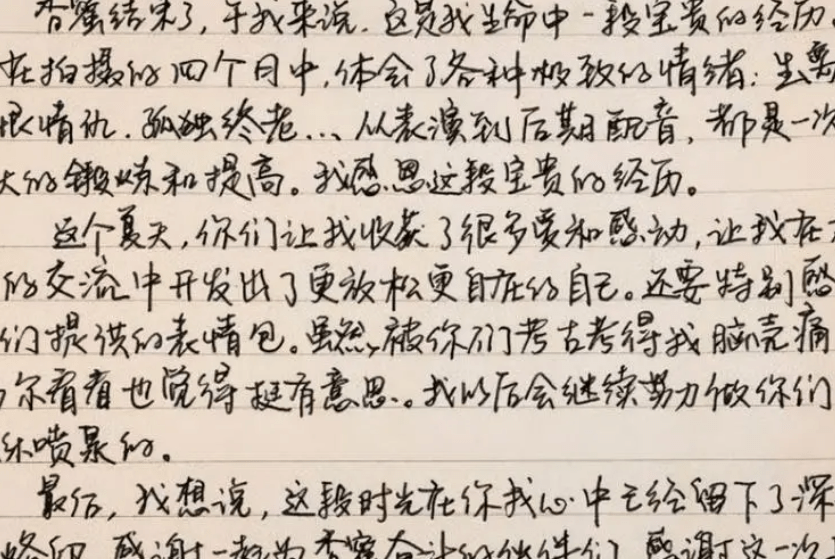 香蜜结束了,于我来说,这是我生命中一段宝贵的经历
在拍摄的四个月中,体会了各种极致的情绪:生离
恨情仇.孤独终老...从表演到后期配音,都是一次
大的锻炼和提高。我感恩这段宝贵的经历。
这个夏天,你们让我收获了很多爱和感动,让我在
的交流中开发出了更放松更自在的自己。还要特别感
们提供的表情包。虽然,被你们考古考得我脑壳痛
尔看看也觉得挺有意思。我以后会继续努力做你们
喷泉的。
最后,我想说,这段时光在你我心中已经留下了深
烙印,感谢一起为香蜜奋斗的伙伴们,感谢这一次